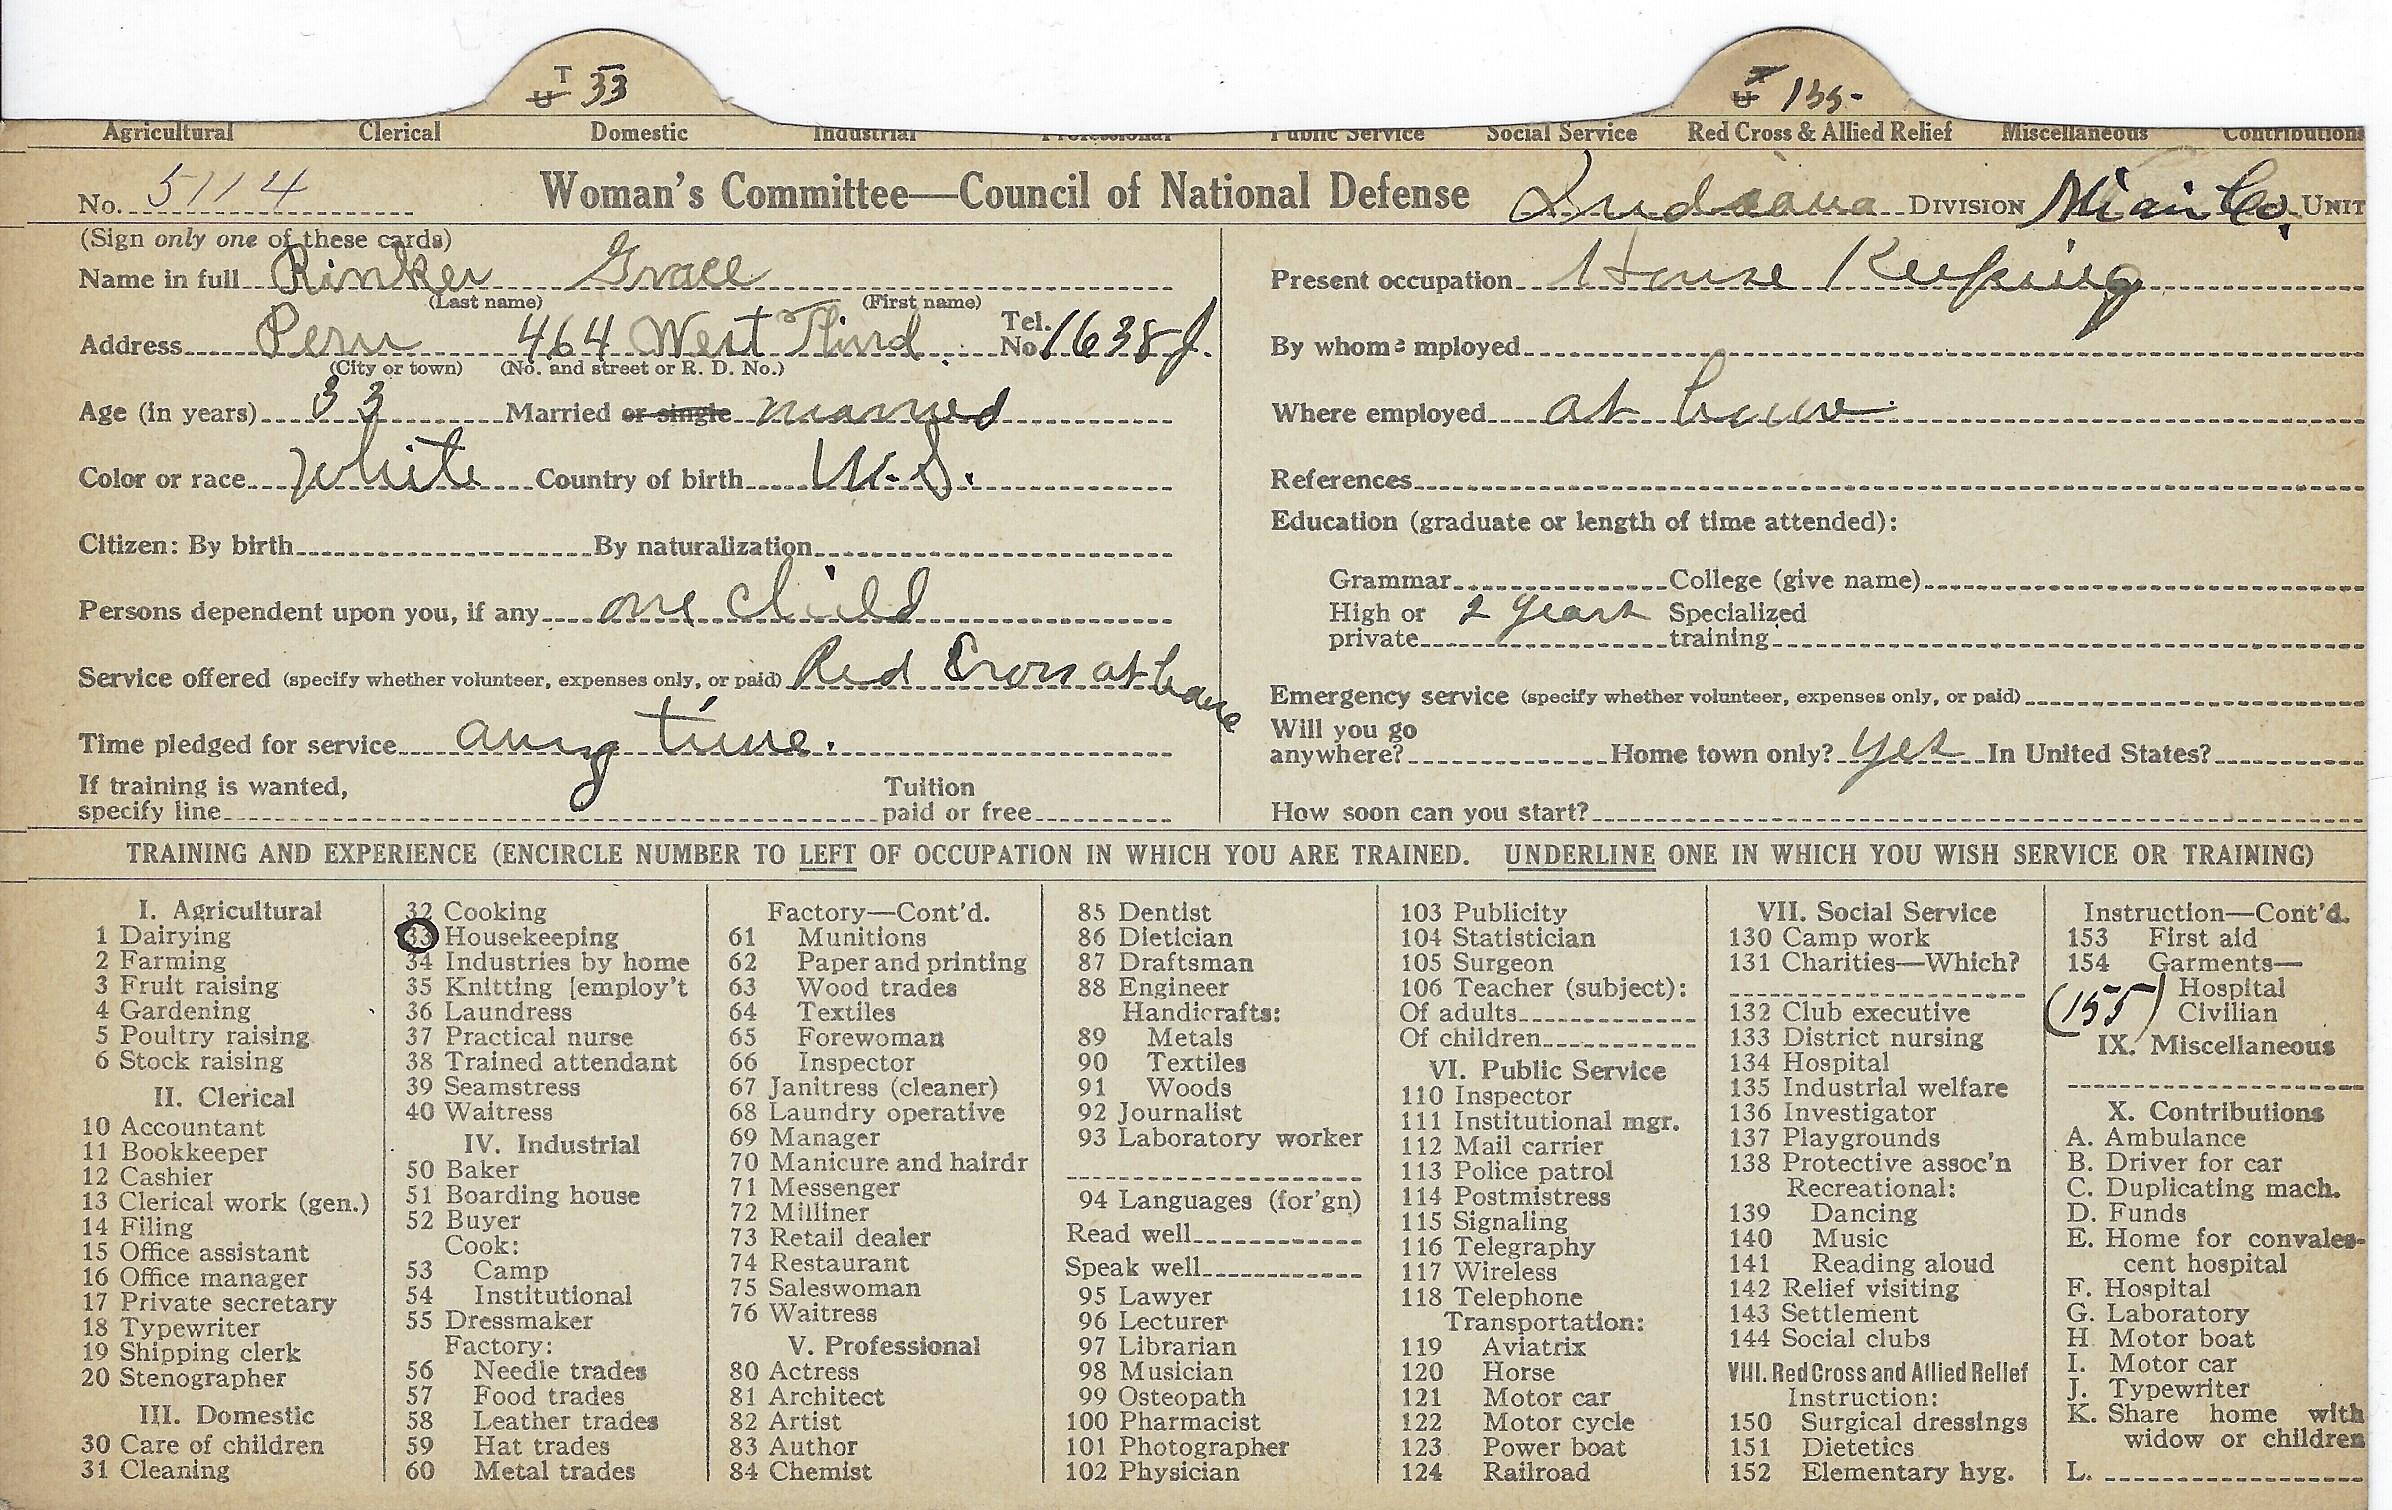 T U 33
T U 155-
Agricultural Clerical Domestic Industrial Professional Public Service Social Service Red Cross & Allied Relief Miscellaneous Contributions
No. 5114 Woman's Committee—Council of National Defense Indiana DIVISION Miami Co. UNIT
(Sign only one of these cards)
Name in full Rinker Grace
(Last name) (First name)
Address Peru 464 West Third Tel. No. 1638 J.
(City or town) (No. and street or R. D. No.)
Age (in years) 33 Married or single married
Color or race white Country of birth U.S.
Citizen: By birth By naturalization
Persons dependent upon you, if any one child
Service offered (specify whether volunteer, expenses only, or paid) Red Cross at home
Time pledged for service any time.
If training is wanted, specify line Tuition paid or free
Present occupation House Keeping
By whom employed
Where employed at home
References
Education (graduate or length of time attended):
Grammar College (give name)
High or private 2 years Specialized training
Emergency service (specify whether volunteer, expenses only, or paid)
Will you go anywhere? Home town only? yes In United States?
How soon can you start?
TRAINING AND EXPERIENCE (ENCIRCLE NUMBER TO LEFT OF OCCUPATION IN WHICH YOU ARE TRAINED. UNDERLINE ONE IN WHICH YOU WISH SERVICE OR TRAINING)
I. Agricultural
1 Dairying
2 Farming
3 Fruit raising
4 Gardening
5 Poultry raising
6 Stock raising
II. Clerical
10 Accountant
11 Bookkeeper
12 Cashier
13 Clerical work (gen.)
14 Filing
15 Office assistant
16 Office manager
17 Private secretary
18 Typewriter
19 Shipping clerk
20 Stenographer
III. Domestic
30 Care of children
31 Cleaning
32 Cooking
33 Housekeeping
34 Industries by home
35 Knitting [employ't
36 Laundress
37 Practical nurse
38 Trained attendant
39 Seamstress
40 Waitress
IV. Industrial
50 Baker
51 Boarding house
52 Buyer
Cook:
53 Camp
54 Institutional
55 Dressmaker
Factory:
56 Needle trades
57 Food trades
58 Leather trades
59 Hat trades
60 Metal trades
Factory—Cont'd.
61 Munitions
62 Paper and printing
63 Wood trades
64 Textiles
65 Forewoman
66 Inspector
67 Janitress (cleaner)
68 Laundry operative
69 Manager
70 Manicure and hairdr
71 Messenger
72 Milliner
73 Retail dealer
74 Restaurant
75 Saleswoman
76 Waitress
V. Professional
80 Actress
81 Architect
82 Artist
83 Author
84 Chemist
85 Dentist
86 Dietician
87 Draftsman
88 Engineer
Handicrafts:
89 Metals
90 Textiles
91 Woods
92 Journalist
93 Laboratory worker
94 Languages (for'gn)
Read well
Speak well
95 Lawyer
96 Lecturer
97 Librarian
98 Musician
99 Osteopath
100 Pharmacist
101 Photographer
102 Physician
103 Publicity
104 Statistician
105 Surgeon
106 Teacher (subject):
Of adults
Of children
VI. Public Service
110 Inspector
111 Institutional mgr.
112 Mail carrier
113 Police patrol
114 Postmistress
115 Signaling
116 Telegraphy
117 Wireless
118 Telephone
Transportation:
119 Aviatrix
120 Horse
121 Motor car
122 Motor cycle
123 Power boat
124 Railroad
VII. Social Service
130 Camp work
131 Charities—Which?
132 Club executive
133 District nursing
134 Hospital
135 Industrial welfare
136 Investigator
137 Playgrounds
138 Protective assoc'n
Recreational:
139 Dancing
140 Music
141 Reading aloud
142 Relief visiting
143 Settlement
144 Social clubs
VIII. Red Cross and Allied Relief
Instruction:
150 Surgical dressings
151 Dietetics
152 Elementary hyg.
Instruction—Cont'd.
153 First aid
154 Garments—
Hospital
(155) Civilian
IX. Miscellaneous
X. Contributions
A. Ambulance
B. Driver for car
C. Duplicating mach.
D. Funds
E. Home for convales-
cent hospital
F. Hospital
G. Laboratory
H. Motor boat
I. Motor car
J. Typewriter
K. Share home with
widow or children
L.